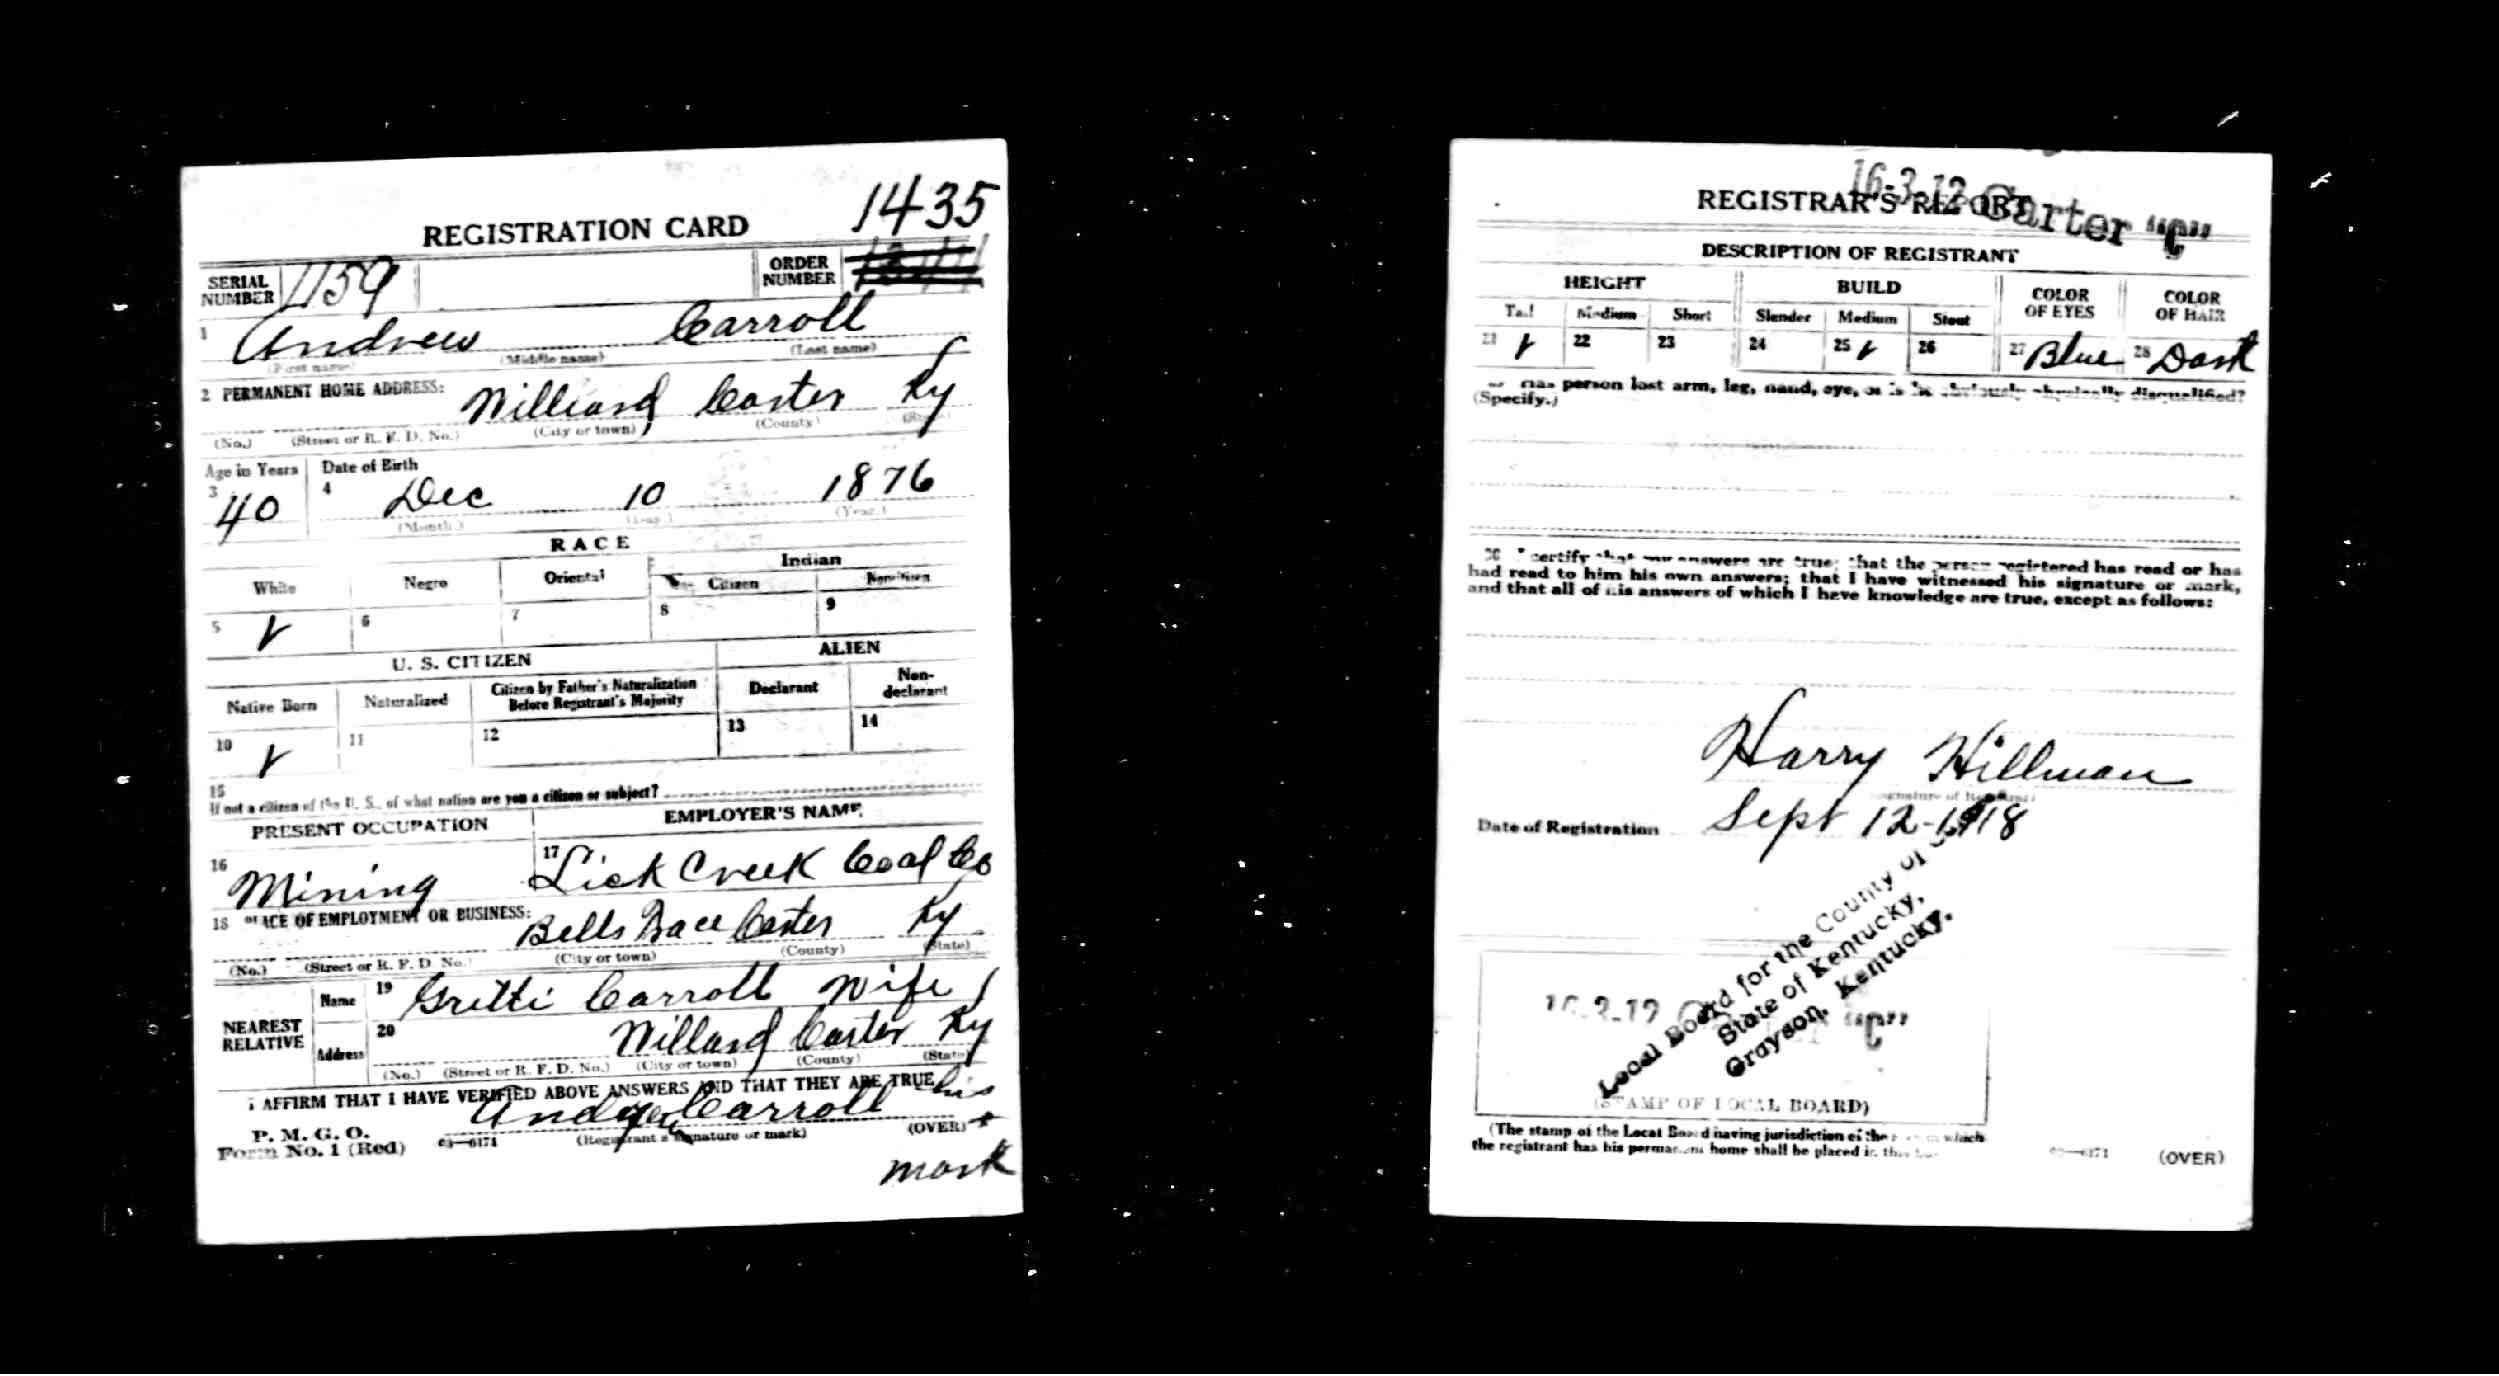 1435
REGISTRATION CARD
SERIAL NUMBER 1159 ORDER NUMBER
1 Andrew Carroll
(First name) (Middle name) (Last name)
2 PERMANENT HOME ADDRESS: Williard Carter Ky
(No.) (Street or R. F. D. No.) (City or town) (County) (State)
Age in Years Date of Birth
3 40 4 Dec 10 1876
(Month.) (Day.) (Year.)
RACE
White Negro Oriental Indian
Citizen Noncitizen
5 ✓ 6 7 8 9
U. S. CITIZEN ALIEN
Native Born Naturalized Citizen by Father's Naturalization Before Registrant's Majority Declarant Non-declarant
10 ✓ 11 12 13 14
15
If not a citizen of the U. S., of what nation are you a citizen or subject?
PRESENT OCCUPATION EMPLOYER'S NAME
16 Mining 17 Lick Creek Coal Co
18 PLACE OF EMPLOYMENT OR BUSINESS: Bells Carter Ky
(No.) (Street or R. F. D. No.) (City or town) (County) (State)
NEAREST RELATIVE Name 19 Gritti Carroll Wife
Address 20 Willard Carter Ky
(No.) (Street or R. F. D. No.) (City or town) (County) (State)
I AFFIRM THAT I HAVE VERIFIED ABOVE ANSWERS AND THAT THEY ARE TRUE
Andrew Carroll his
P. M. G. O.
Form No. 1 (Red) 03—6171 (Registrant's signature or mark) (OVER) +
mark
16-3-12 Carter "C"
REGISTRAR'S REPORT
DESCRIPTION OF REGISTRANT
HEIGHT BUILD COLOR OF EYES COLOR OF HAIR
Tall Medium Short Slender Medium Stout
21 ✓ 22 23 24 25 ✓ 26 27 Blue 28 Dark
Has person lost arm, leg, hand, eye, or is he obviously physically disqualified?
(Specify.)
30 I certify that my answers are true; that the person registered has read or has
had read to him his own answers; that I have witnessed his signature or mark,
and that all of his answers of which I have knowledge are true, except as follows:
Harry Hillman
(Signature of Registrar)
Date of Registration Sept 12-1918
Local Board for the County of
State of Kentucky,
Grayson, Kentucky.
16-3-12 "C"
(STAMP OF LOCAL BOARD)
(The stamp of the Local Board having jurisdiction of the which
the registrant has his permanent home shall be placed in this
03—6171 (OVER)